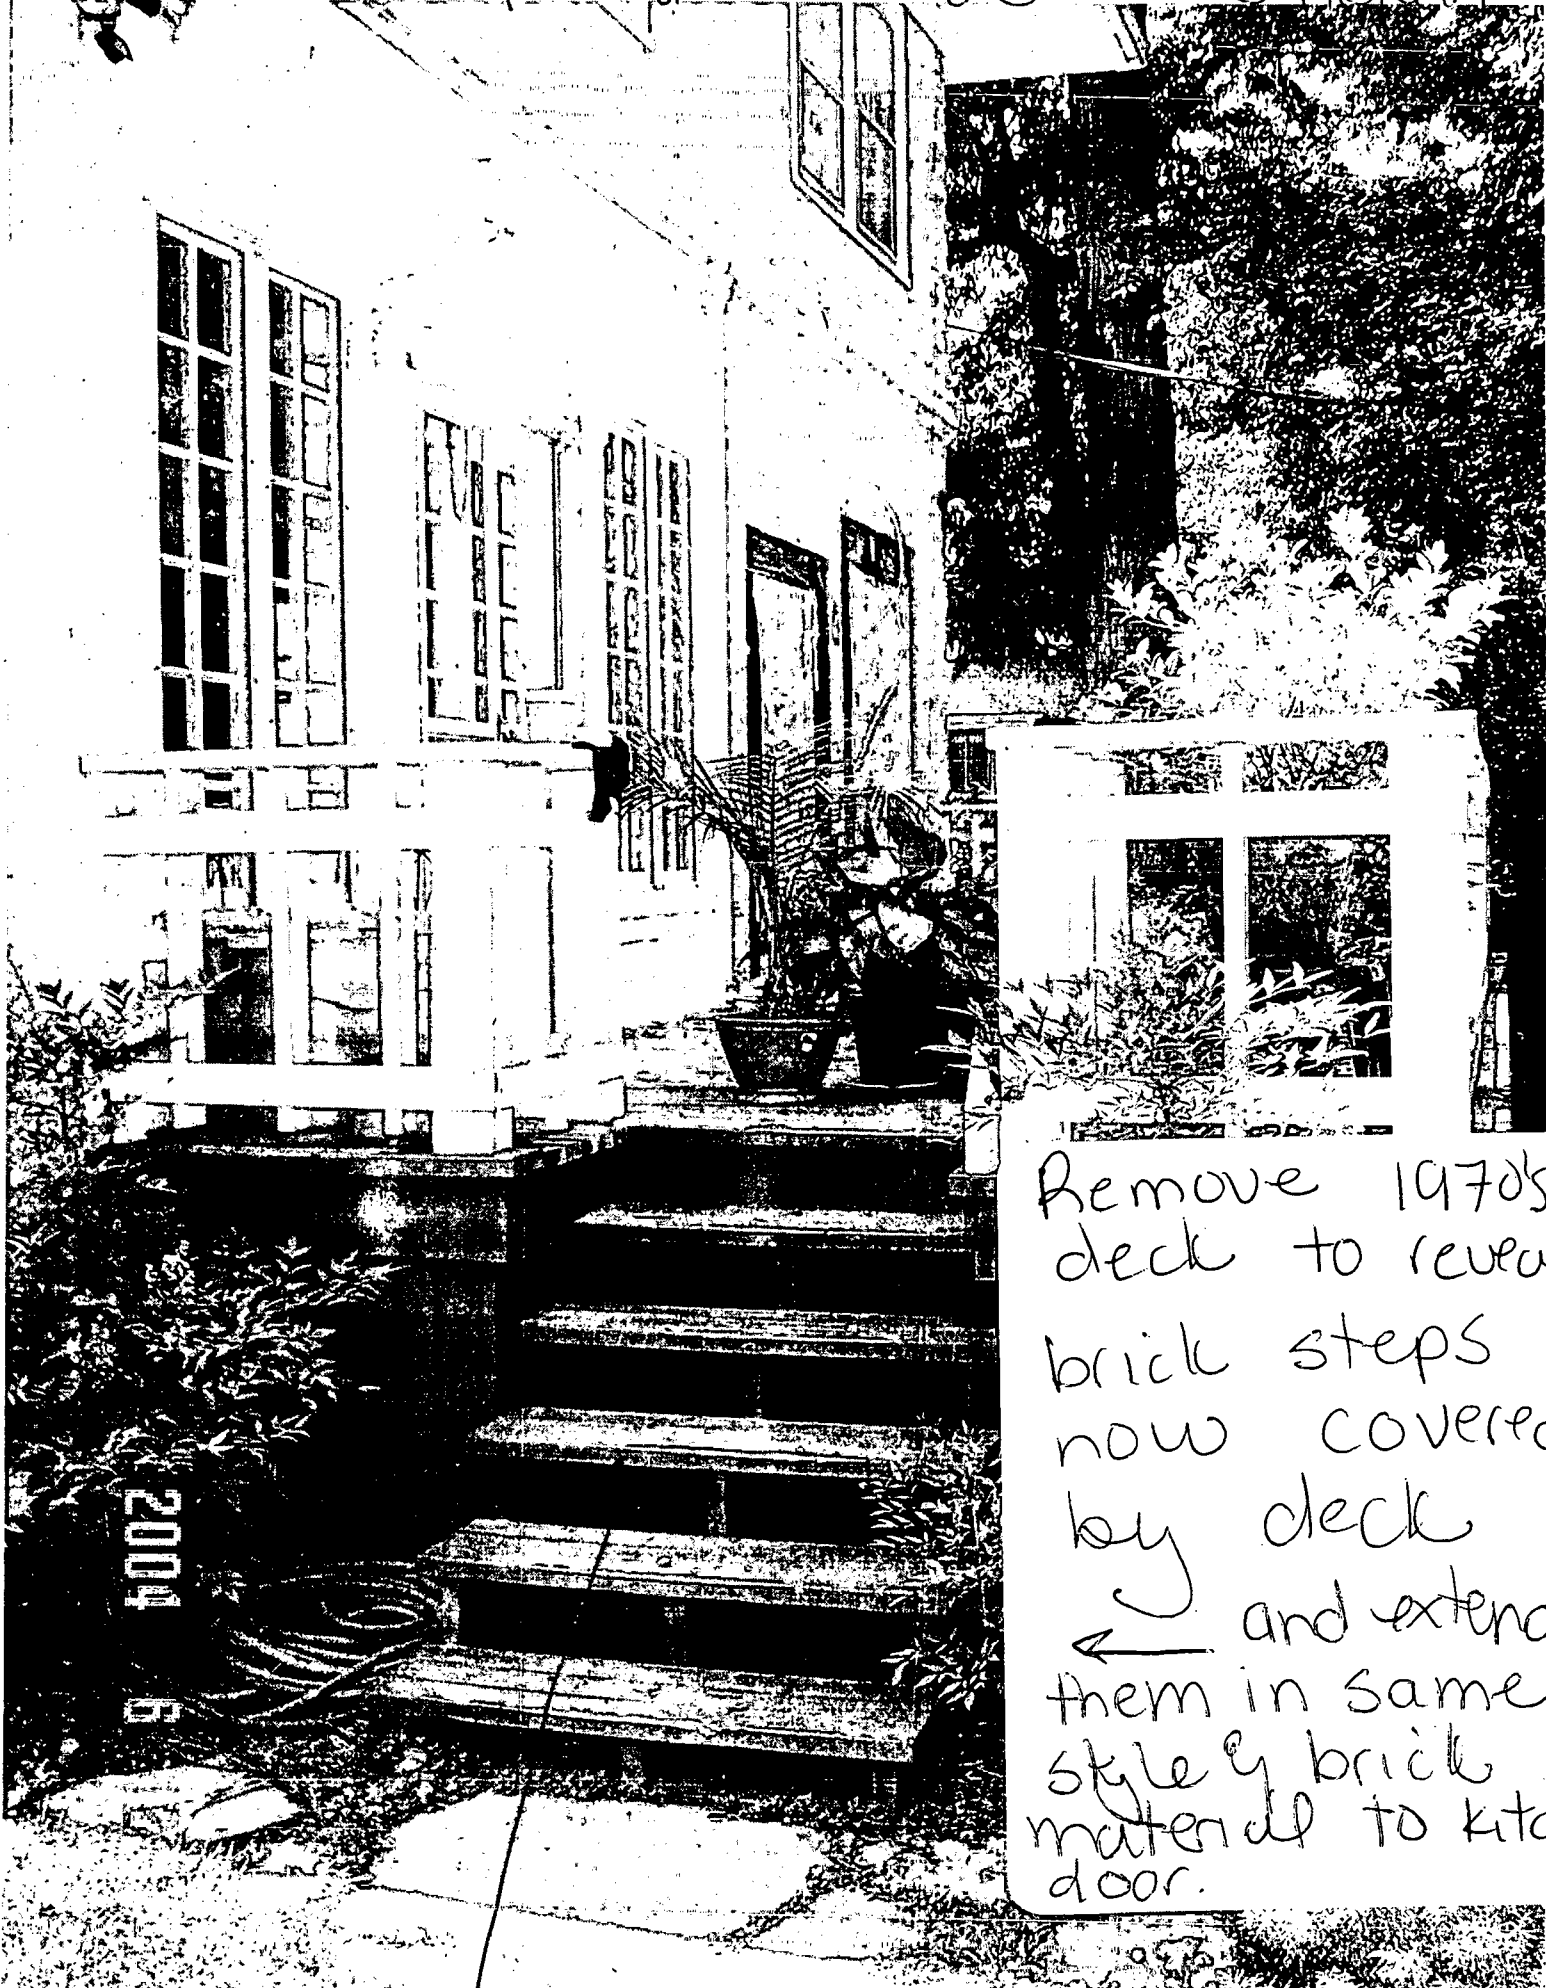 Remove 1970's
deck to revea
brick steps
now covered
by deck
← and extend
them in same
style & brick
material to kitc
door.
2004 6